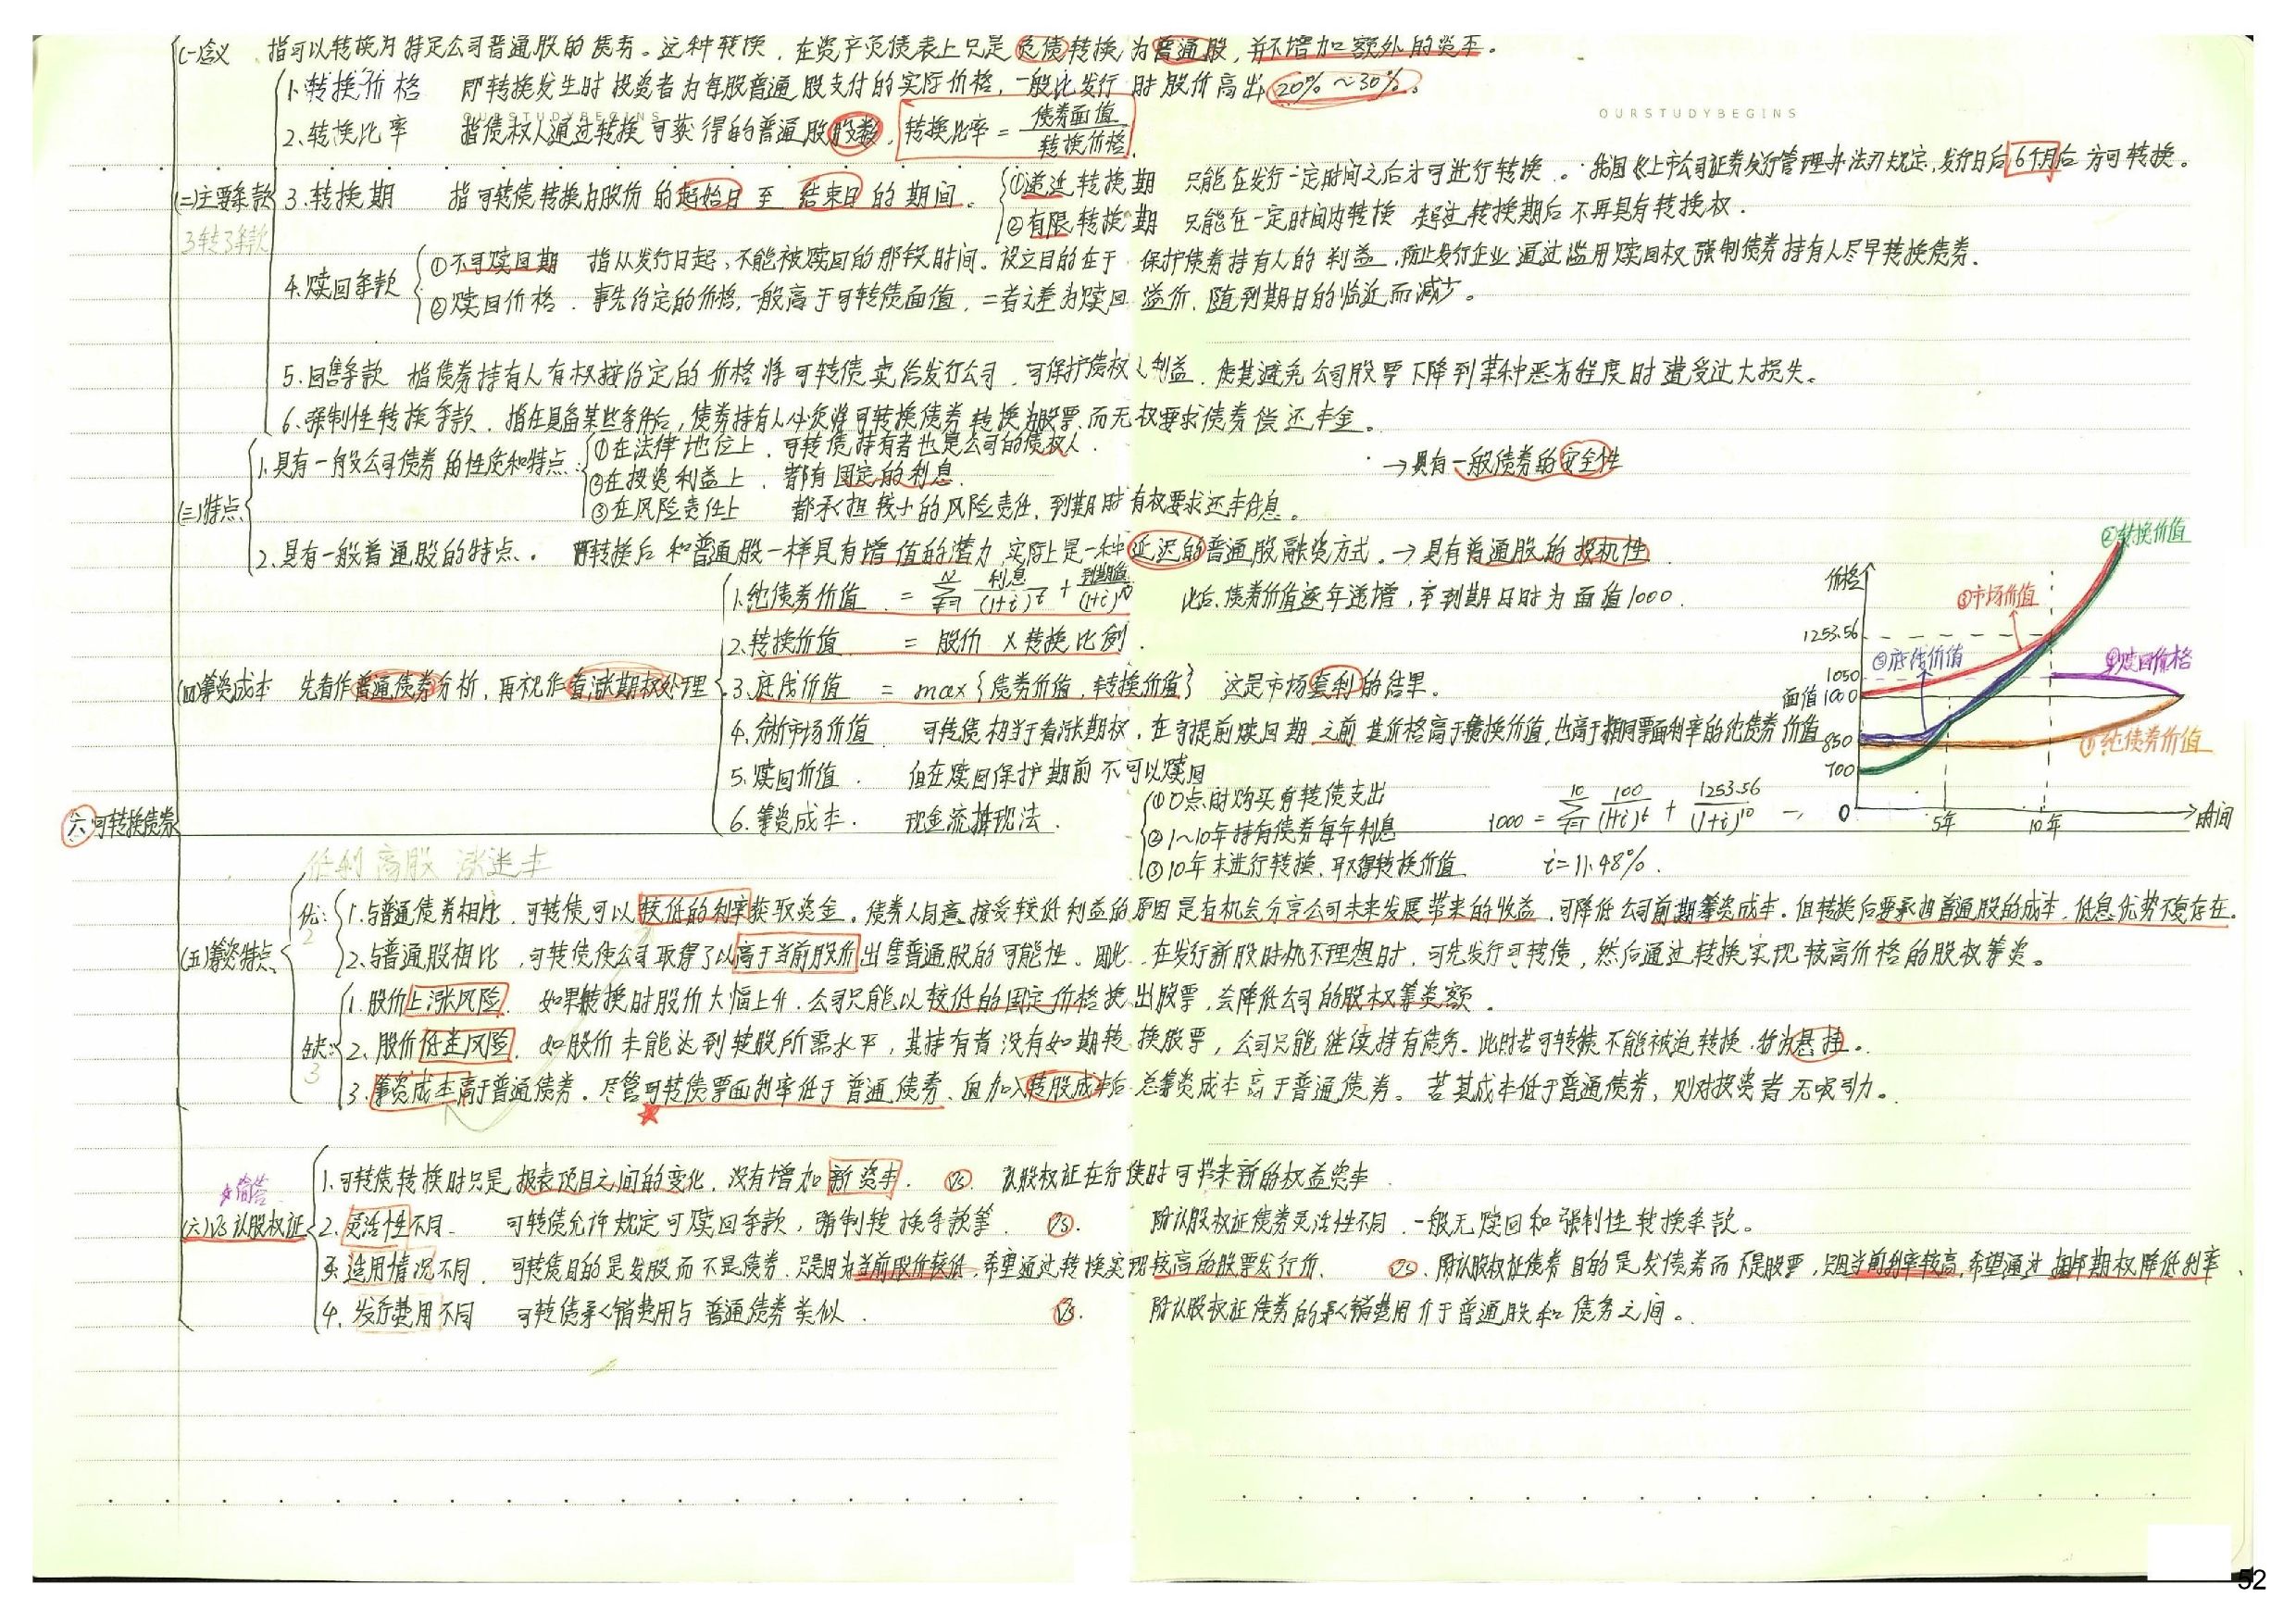 (一)含义 指可以转换为特定公司普通股的债券。这种转换，在资产负债表上只是负债转换为普通股，并不增加额外的资本。
1.转换价格 即转换发生时投资者为每股普通股支付的实际价格，一般比发行时股价高出20%~30%。
OURSTUDYBEGINS
OURSTUDYBEGINS
2.转换比率 指债权人通过转换可获得的普通股股数，转换比率 = 债券面值/转换价格.
(二)主要条款 3.转换期 指可转债转换为股份的起始日至结束日的期间。
3转3条款
①递延转换期 只能在发行一定时间之后才可进行转换。我国《上市公司证券发行管理办法》规定，发行日后6个月后方可转换。
②有限转换期 只能在一定时间内转换 超过转换期后不再具有转换权.
4.赎回条款 ①不可赎回期 指从发行日起，不能被赎回的那段时间。设立目的在于保护债券持有人的利益，防止发行企业通过滥用赎回权强制债券持有人尽早转换债券.
②赎回价格. 事先约定的价格，一般高于可转债面值，二者之差为赎回溢价，随到期日的临近而减少。
5.回售条款 指债券持有人有权按约定的价格将可转债卖给发行公司，可保护债权人利益，使其避免公司股票下降到某种恶劣程度时遭受过大损失。
6.强制性转换条款. 指在具备某些条件后，债券持有人必须将可转换债券转换为股票，而无权要求债券偿还本金。
(三)特点 1.具有一般公司债券的性质和特点: ①在法律地位上，可转债持有者也是公司的债权人.
②在投资利益上，都有固定的利息.
→具有一般债券的安全性
③在风险责任上 都承担较小的风险责任，到期时有权要求还本付息。
2.具有一般普通股的特点. 即转换后和普通股一样具有增值的潜力，实际上是一种延迟的普通股融资方式。→具有普通股的投机性
(四)筹资成本 先看作普通债券分析，再视作看涨期权处理
1.纯债券价值 = Σ(t=1→N) 利息/(1+i)^t + 到期值/(1+i)^N 此后，债券价值逐年递增，至到期日时为面值1000.
2.转换价值 = 股价×转换比例.
3.底线价值 = max{债券价值，转换价值} 这是市场套利的结果。
4.分析市场价值 可转债相当于看涨期权，在可提前赎回期之前其价格高于转换价值，也高于相同票面利率的纯债券价值
5.赎回价值. 但在赎回保护期前不可以赎回
6.筹资成本. 现金流折现法.
①0点时购买可转债支出
②1~10年持有债券每年利息
③10年末进行转换，取得转换价值
1000 = Σ(t=1→10) 100/(1+i)^t + 1253.56/(1+i)^10
i=11.48%.
价格
②转换价值
④市场价值
1253.56
③底线价值
⑤赎回价格
1050
面值1000
850
①纯债券价值
700
0 5年 10年 时间
六 可转换债券
低利 高股 涨迷本
(五)筹资特点
优: 2
1.与普通债券相比，可转债可以较低的利率获取资金。债券人同意接受较低利益的原因是有机会分享公司未来发展带来的收益，可降低公司前期筹资成本。但转换后要承担普通股的成本，低息优势不复存在.
2.与普通股相比，可转债使公司取得了以高于当前股价出售普通股的可能性。因此，在发行新股时机不理想时，可先发行可转债，然后通过转换实现较高价格的股权筹资。
缺: 3
1.股价上涨风险. 如果转换时股价大幅上升，公司只能以较低的固定价格换出股票，会降低公司的股权筹资额.
2.股价低迷风险. 如股价未能达到转股所需水平，其持有者没有如期转换股票，公司只能继续持有债务。此时若可转债不能被迫转换，称为悬挂。
3.筹资成本高于普通债券。尽管可转债票面利率低于普通债券，但加入转股成本后，总筹资成本高于普通债券。若其成本低于普通债券，则对投资者无吸引力。
简答
(六)VS认股权证
1.可转债转换时只是报表项目之间的变化，没有增加新资本. VS. 认股权证在行使时可带来新的权益资本.
2.灵活性不同. 可转债允许规定可赎回条款，强制转换条款等. VS. 附认股权证债券灵活性不同，一般无赎回和强制性转换条款。
3.适用情况不同. 可转债目的是发股而不是债券，只是因为当前股价较低，希望通过转换实现较高的股票发行价. VS. 附认股权证债券目的是发债券而不是股票，只因当前利率较高，希望通过捆绑期权降低利率.
4.发行费用不同 可转债承销费用与普通债券类似. VS. 附认股权证债券的承销费用介于普通股和债务之间。
52